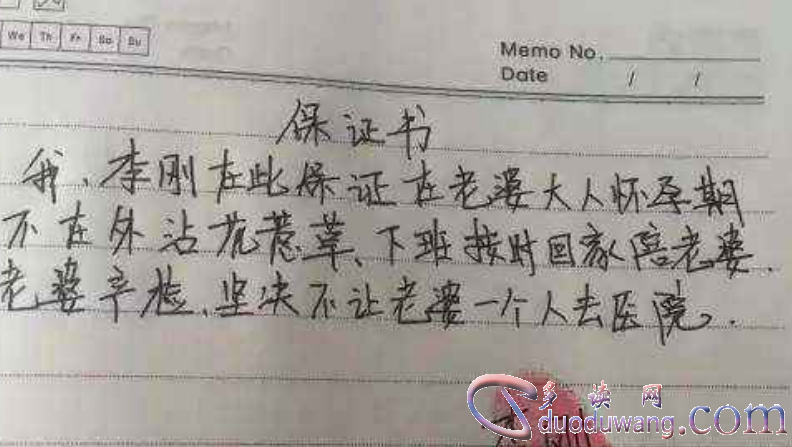 We Th Fr Sa Su
Memo No.
Date / /
保证书
我、李刚在此保证在老婆大人怀孕期
不在外沾花惹草、下班按时回家陪老婆.
老婆产检、坚决不让老婆一个人去医院.
李刚
多读网
duoduwang.com